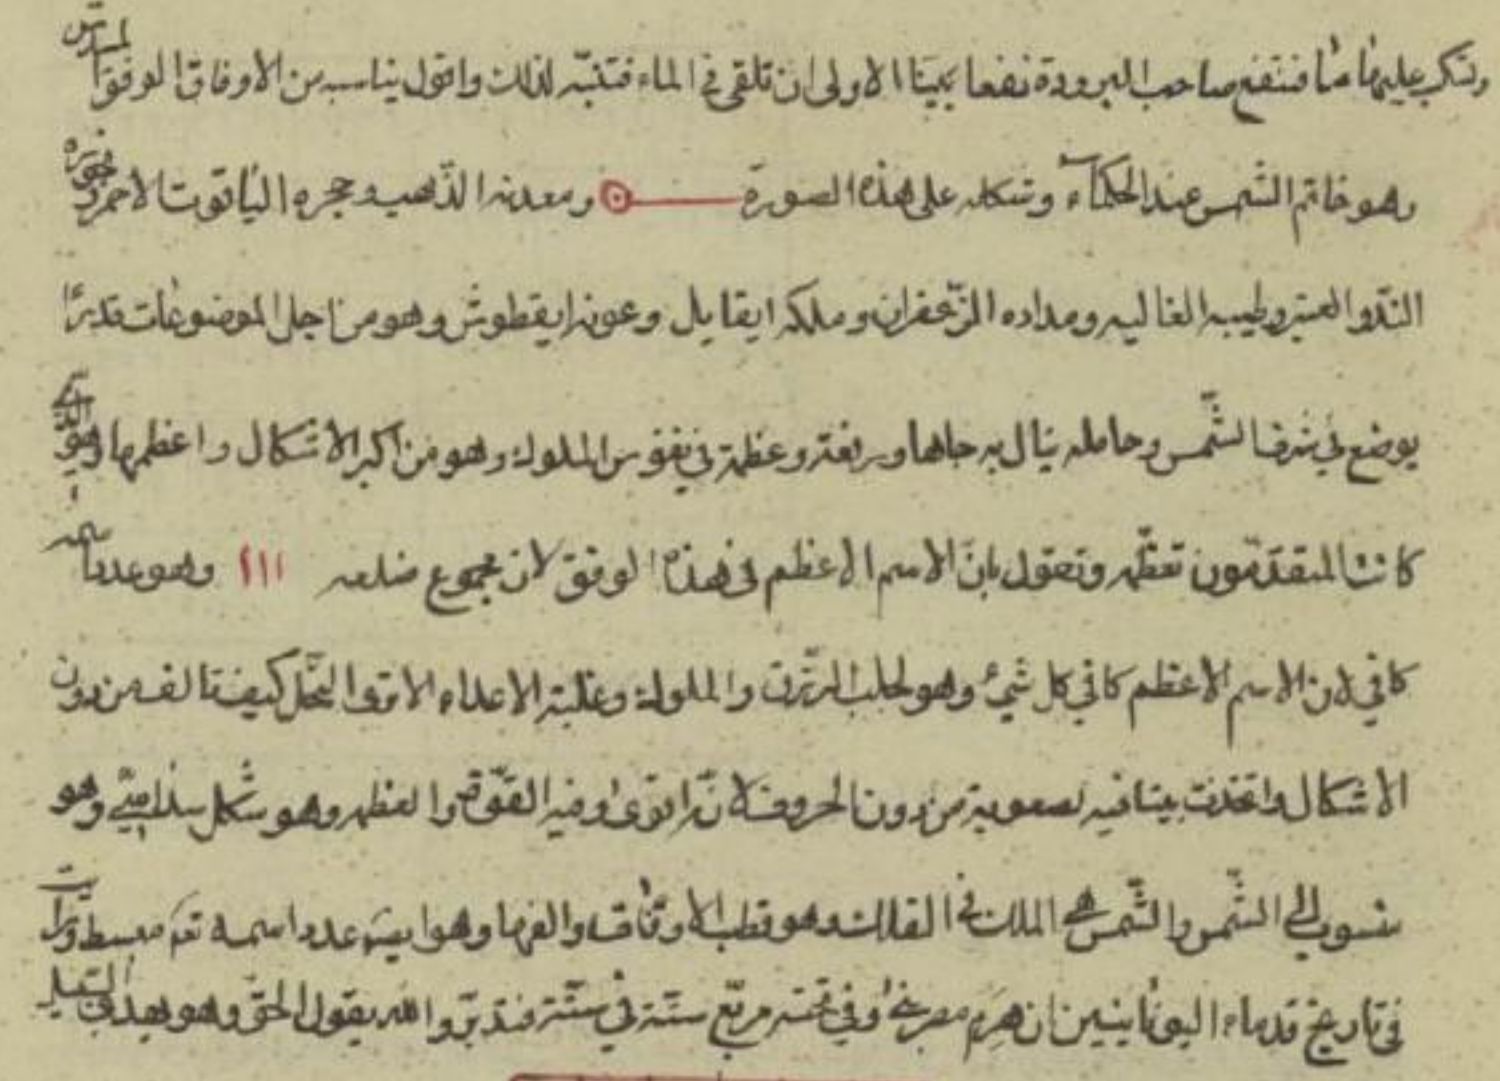 وتكرر عليهما شيئا فتنفع صاحب البرودة نفعا بينا الاولى ان تلقى فى الماء فتنبّه لذلك واقول يناسبه من الاوفاق الوفق المسدّس
وهو خاتم الشّمس عند الحكمآء وشكله على هذه الصورة ومعدنه الذّهب وحجره الياقوت الاحمر وبخوره
النّد والعنبر وطيبه الغاليه ومداده الزّعفران وملكه ايقايل وعونه ايقطوش وهو من اجل الموضوعات قدرًا
يوضع في شرف الشّمس وحامله ينال به جاها ورفعة وعظمة في نفوس الملوك وهو من اكبر الاشكال واعظمها وهو الذّي
كانت المتقدّمون تعظّمه وتقول بانّ الاسم الاعظم في هذا الوفق لان مجموع ضلعه ١١١ وهو عدد اسمه
كافي لان الاسم الاعظم كافي كل شئ وهو لجلب الرّزق والملوك وغلبة الاعداء الاقوى من دون
الاشكال واتخذت بيتا فيه لصعوبة من دون الحروف لانّه اقوى وفيه القوّة والعظمه وهو شكل سداسيّ وهو
منسوب الى الشّمس والشّمس هي الملك في الفلك وهو قطب الاوفاق والفها وهو ايضا عدد اسمه
في تاريخ قدماء اليونانيين ان هرم مصر وفي تحته مربّع ستّة في ستّة فتدبّر والله يقول الحقّ وهو يهدي السّبيل